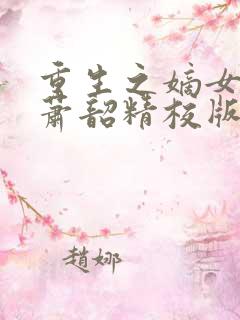 重生之嫡女
萧韶精校版
趙娜